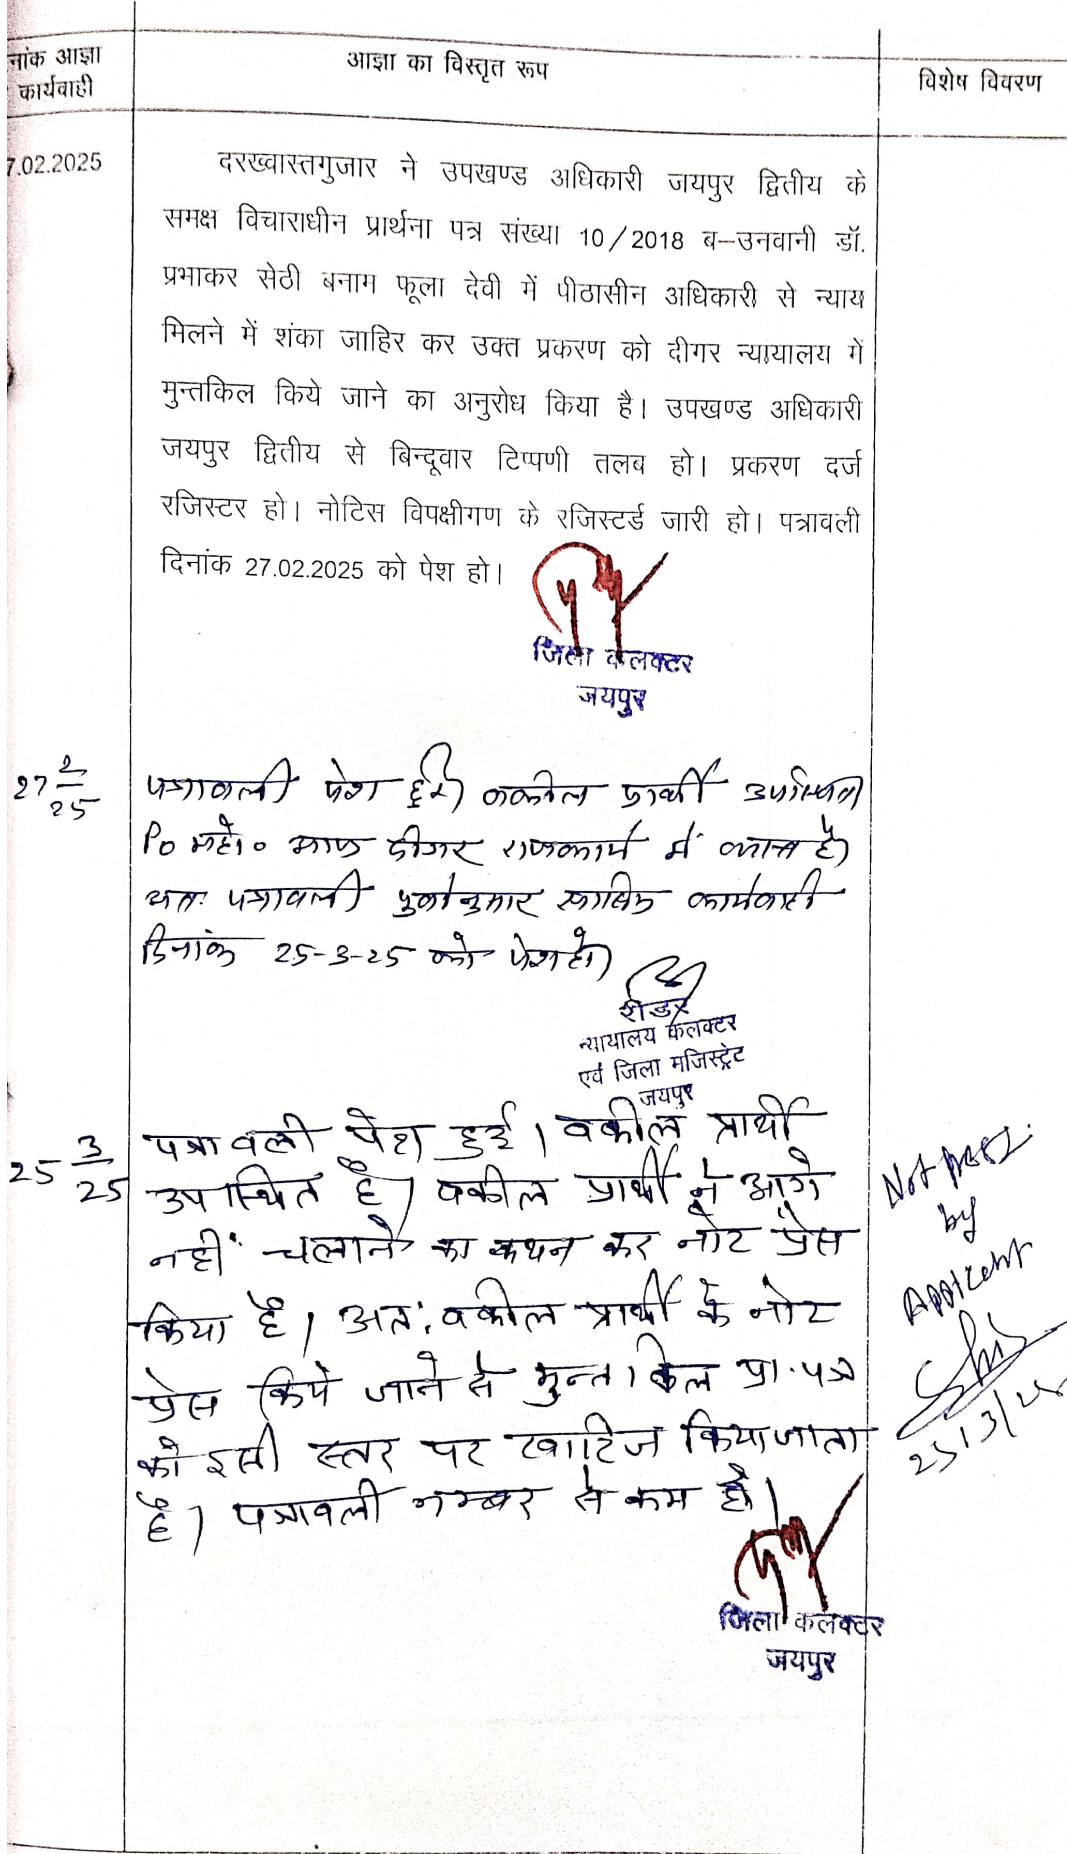 नांक आज्ञा
कार्यवाही
आज्ञा का विस्तृत रूप
विशेष विवरण
7.02.2025
दरख्वास्तगुजार ने उपखण्ड अधिकारी जयपुर द्वितीय के
समक्ष विचाराधीन प्रार्थना पत्र संख्या 10/2018 ब–उनवानी डॉ.
प्रभाकर सेठी बनाम फूला देवी में पीठासीन अधिकारी से न्याय
मिलने में शंका जाहिर कर उक्त प्रकरण को दीगर न्यायालय में
मुन्तकिल किये जाने का अनुरोध किया है। उपखण्ड अधिकारी
जयपुर द्वितीय से बिन्दूवार टिप्पणी तलब हो। प्रकरण दर्ज
रजिस्टर हो। नोटिस विपक्षीगण के रजिस्टर्ड जारी हो। पत्रावली
दिनांक 27.02.2025 को पेश हो।
जिला कलक्टर
जयपुर
27 2/25
पत्रावली पेश हुई। वकील प्रार्थी उपस्थित।
P० महो० आज दीगर राजकार्य में व्यस्त है।
अतः पत्रावली पूर्वानुसार कार्यवाही
दिनांक 25-3-25 को पेश हो।
रीडर
न्यायालय कलक्टर
एवं जिला मजिस्ट्रेट
जयपुर
25 3/25
पत्रावली पेश हुई। वकील प्रार्थी
उपस्थित है। वकील प्रार्थी ने आगे
नहीं चलाने का कथन कर नोट प्रेस
किया है। अतः वकील प्रार्थी के नोट
प्रेस किये जाने से मुन्तकिल प्रा.पत्र
को इसी स्तर पर खारिज किया जाता
है। पत्रावली नम्बर से कम हो।
Not press
by
Applicant
25/3/25
जिला कलक्टर
जयपुर